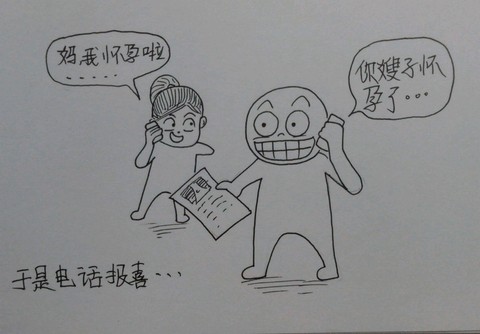 妈,我怀孕啦
......
你嫂子怀
孕了...
于是电话报喜...